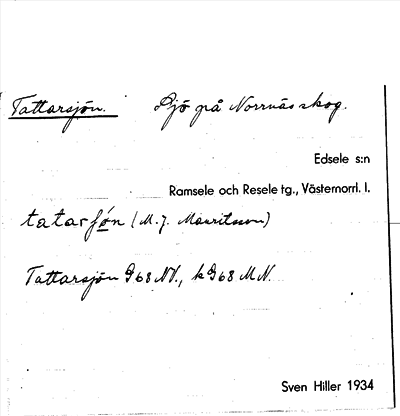 Tattarsjön. Sjö på Norrnäs skog.
Edsele s:n
Ramsele och Resele tg., Västernorrl. l.
tatarʃø̱n (M. J. Mauritsson)
Tattarsjön G68 NV., kG68 MN.
Sven Hiller 1934